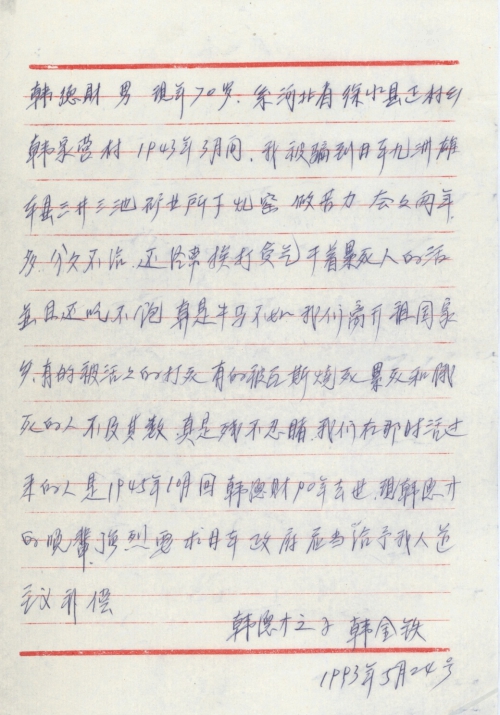 韩德财 男 现年70岁.系河北省徐水县正村乡
韩家营村 1943年3月间.我被骗到日本九洲雄
本县三井三池矿业所下坑窑 做苦力 去之两年
多.分文不给.还经常挨打负气干着累死人的活
並且还吃不饱 真是牛马不如 我们离开祖国家
乡.有的被活之的打死 有的被瓦斯烧死 累死和饿
死的人不及其数 真是残不忍睹.我们在那时活过
来的人是1945年10月回 韩德财90年去世.现韩德才
的晚辈.强烈要求日本政府应当给予我人道
主义补偿
韩德才之子 韩金铁
1993年5月24号